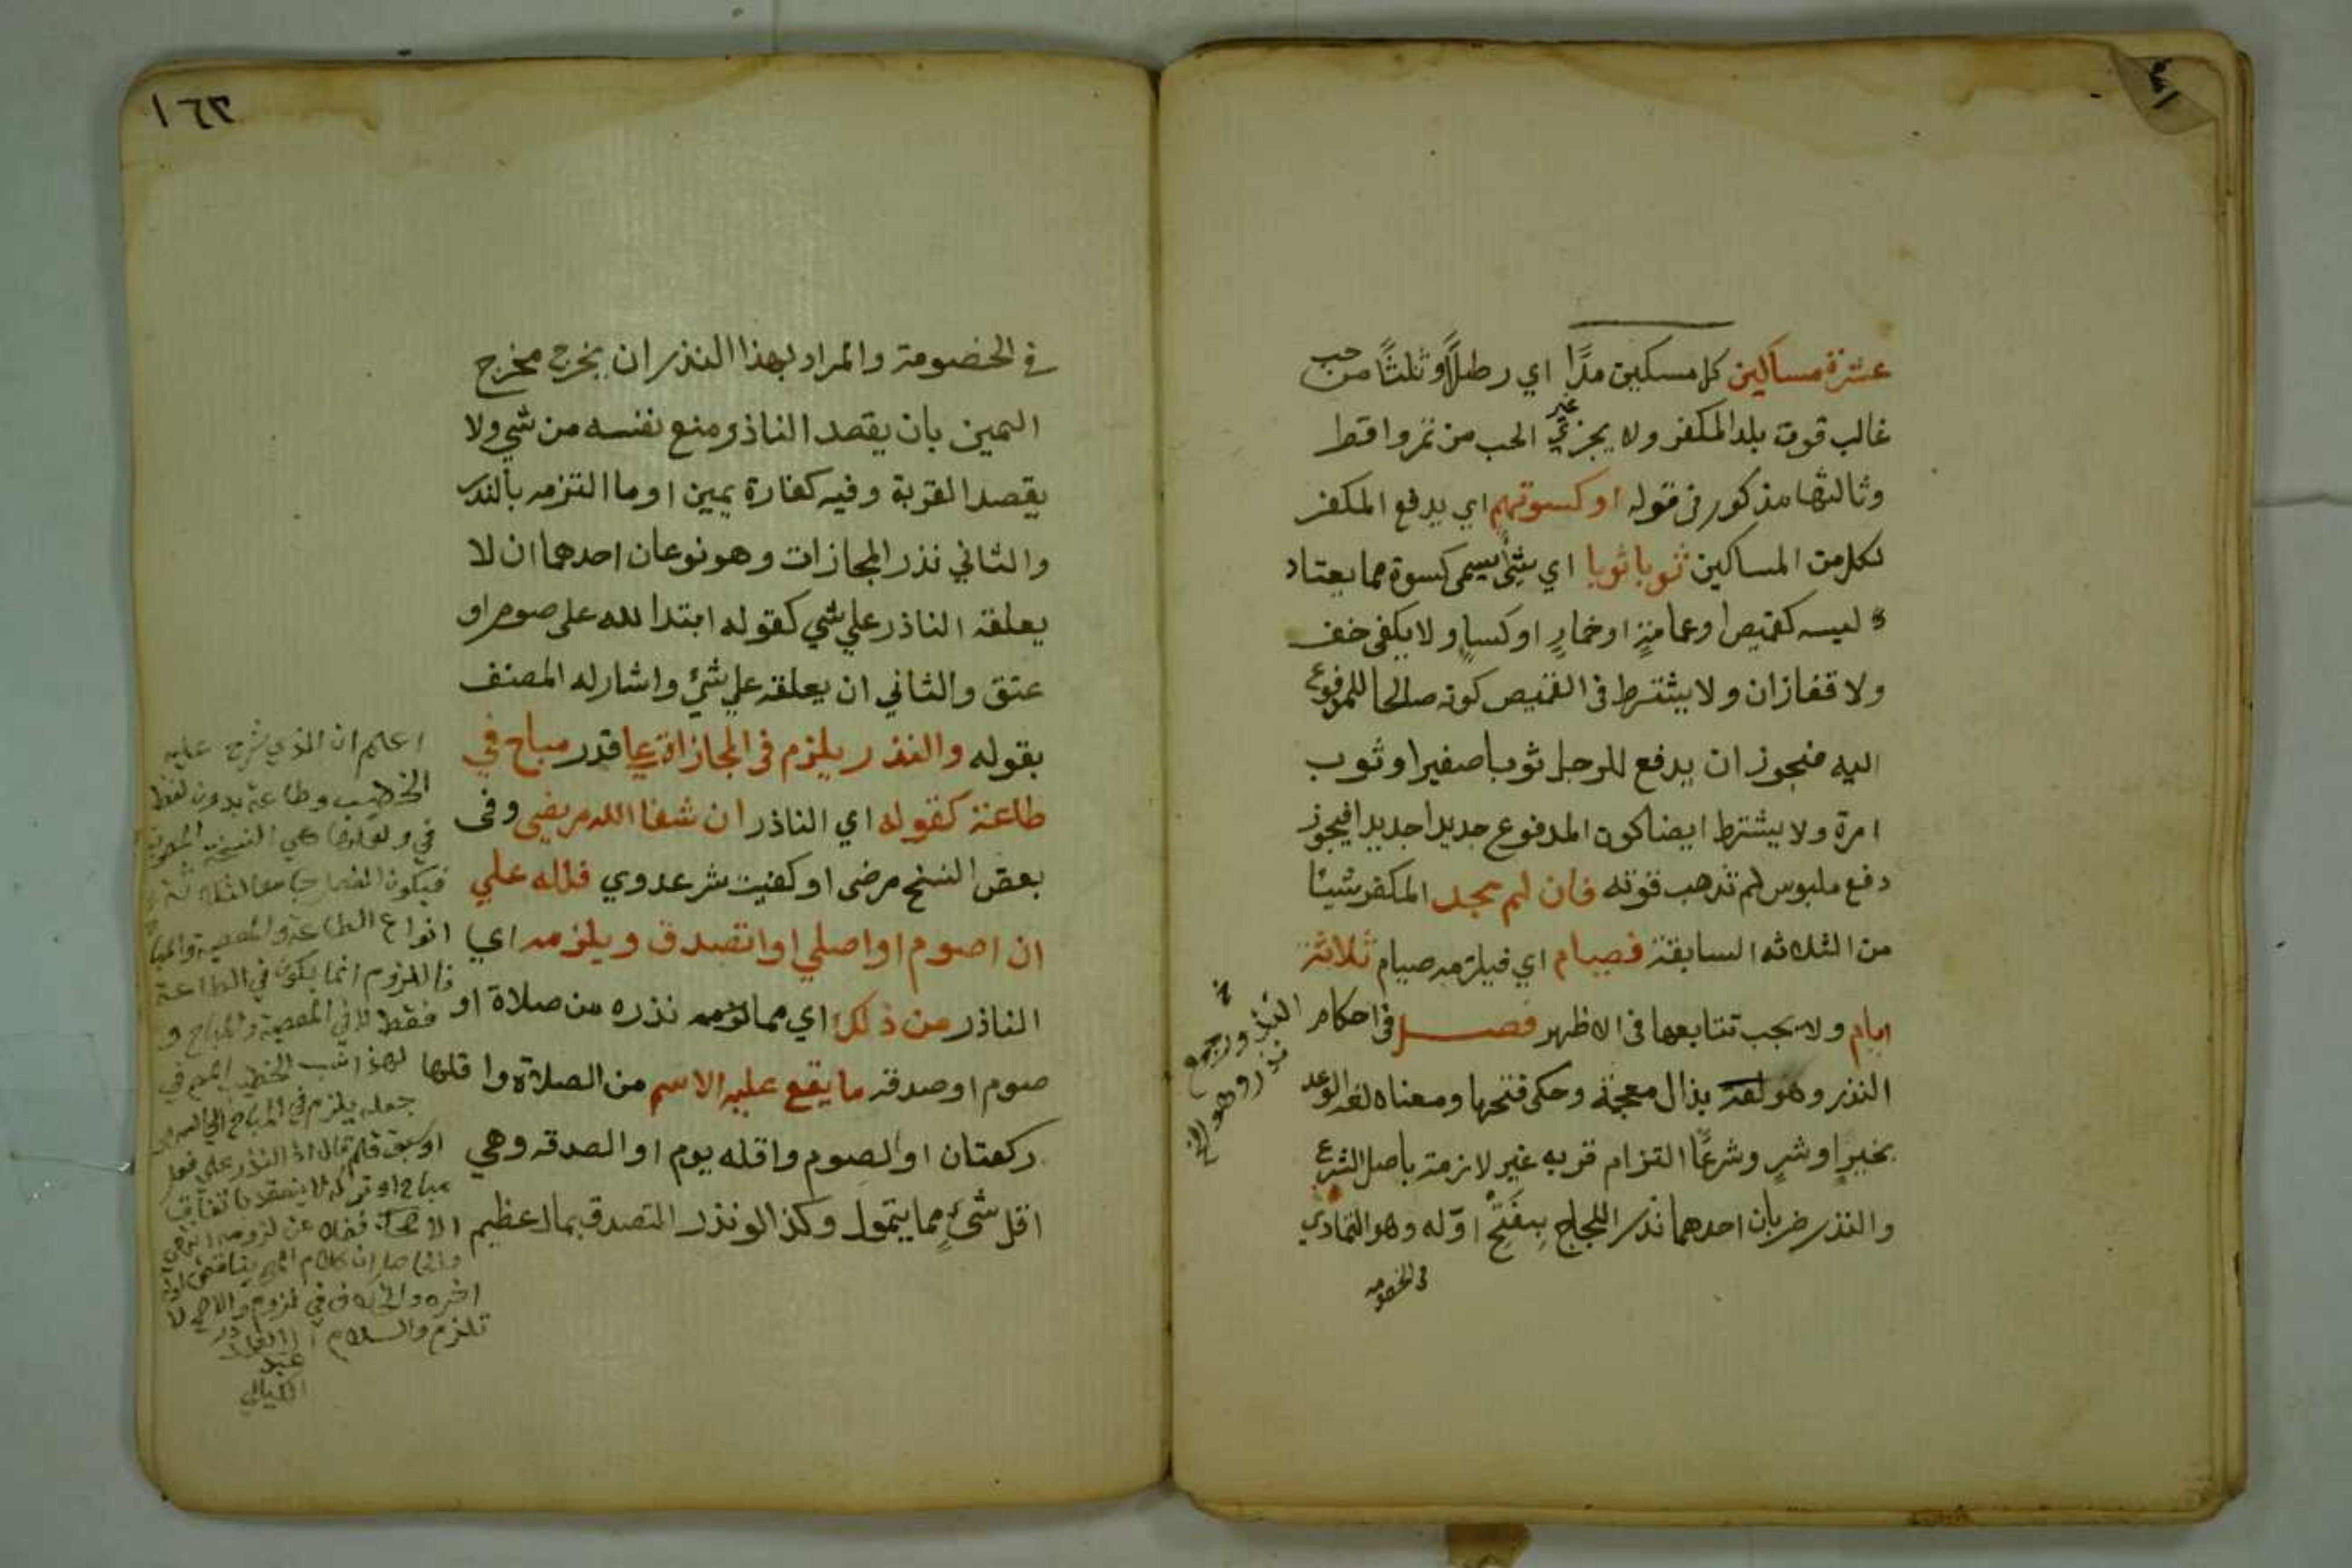 عشرة مساكين كل مسكين مدًّا اي رطلاً وثلثاً من حب
غالب قوت بلد المكفر ولا يجزئ غير الحب من تمر واقط
وثالثها مذكور في قوله او كسوتهم اي يدفع المكفر
لكل من المساكين ثوبا ثوبا اي شئ يسمى كسوة مما يعتاد
لبسه كقميص او عمامة او خمار او كساء ولا يكفي خف
ولا قفازان ولا يشترط في القميص كونه صالحا للمدفوع
اليه فيجوز ان يدفع للرجل ثوبا صغيرا وثوب
امرة ولا يشترط ايضا كون المدفوع جديدا جديدا فيجوز
دفع ملبوس لم تذهب قوته فان لم يجد المكفر شيئا
من الثلاثه السابقة فصيام اي فيلزمه صيام ثلاثة
ايام ولا يجب تتابعها في الاظهر فصل في احكام النذر
وجمع نذر وهو الخ
النذر وهو لغة بذال معجمة وحكي فتحها ومعناه لغة الوعد
بخيرٍ او شرٍ وشرعًا التزام قربه غير لازمة باصل الشرع
والنذر ضربان احدهما نذر اللجاج بفتح اوّله وهو التمادي
في الخصومه
١٦٣
في الخصومة والمراد بهذا النذر ان يخرج مخرج
اليمين بان يقصد الناذر منع نفسه من شي ولا
يقصد القربة وفيه كفارة يمين او ما التزمه بالنذر
والثاني نذر المجازات وهو نوعان احدهما ان لا
يعلقه الناذر علي شي كقوله ابتدا لله على صوم او
عتق والثاني ان يعلقه علي شئ واشار له المصنف
بقوله والنذر يلزم في المجازاة علي قدر مباح في
طاعة كقوله اي الناذر ان شفا الله مريضي وفي
بعض النسخ مرضى او كفيت شر عدوي فلله علي
ان اصوم او اصلي او اتصدق ويلزمه اي
الناذر من ذلك اي مما نذره من صلاة او
صوم او صدقه ما يقع عليه الاسم من الصلاة واقلها
ركعتان او الصوم واقله يوم او الصدقه وهي
اقل شئٍ مما يتمول وكذا لو نذر التصدق بمال عظيم
اعلم ان الذي شرح عليه
الخطيب وطاعة بدون لفظ
في ولعلها هي النسخة
انواع الطاعة والمعصية
فاللزوم انما يكون في الطاعة
فقط لا في المعصية والمباح و
جعله يلزم في المباح
او سبق قلم قال اذ النذر على فعل
مباح او تركه لا ينعقد باتفاق
الاصحاب فضلا عن لزومه
والحاصل ان كلام
تلزم والسلام
عبد